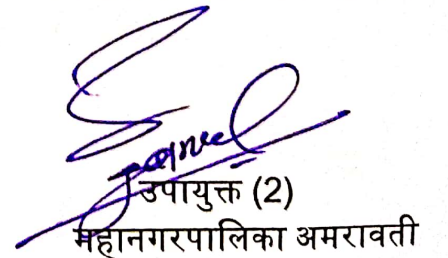 उपायुक्त (2)
महानगरपालिका अमरावती